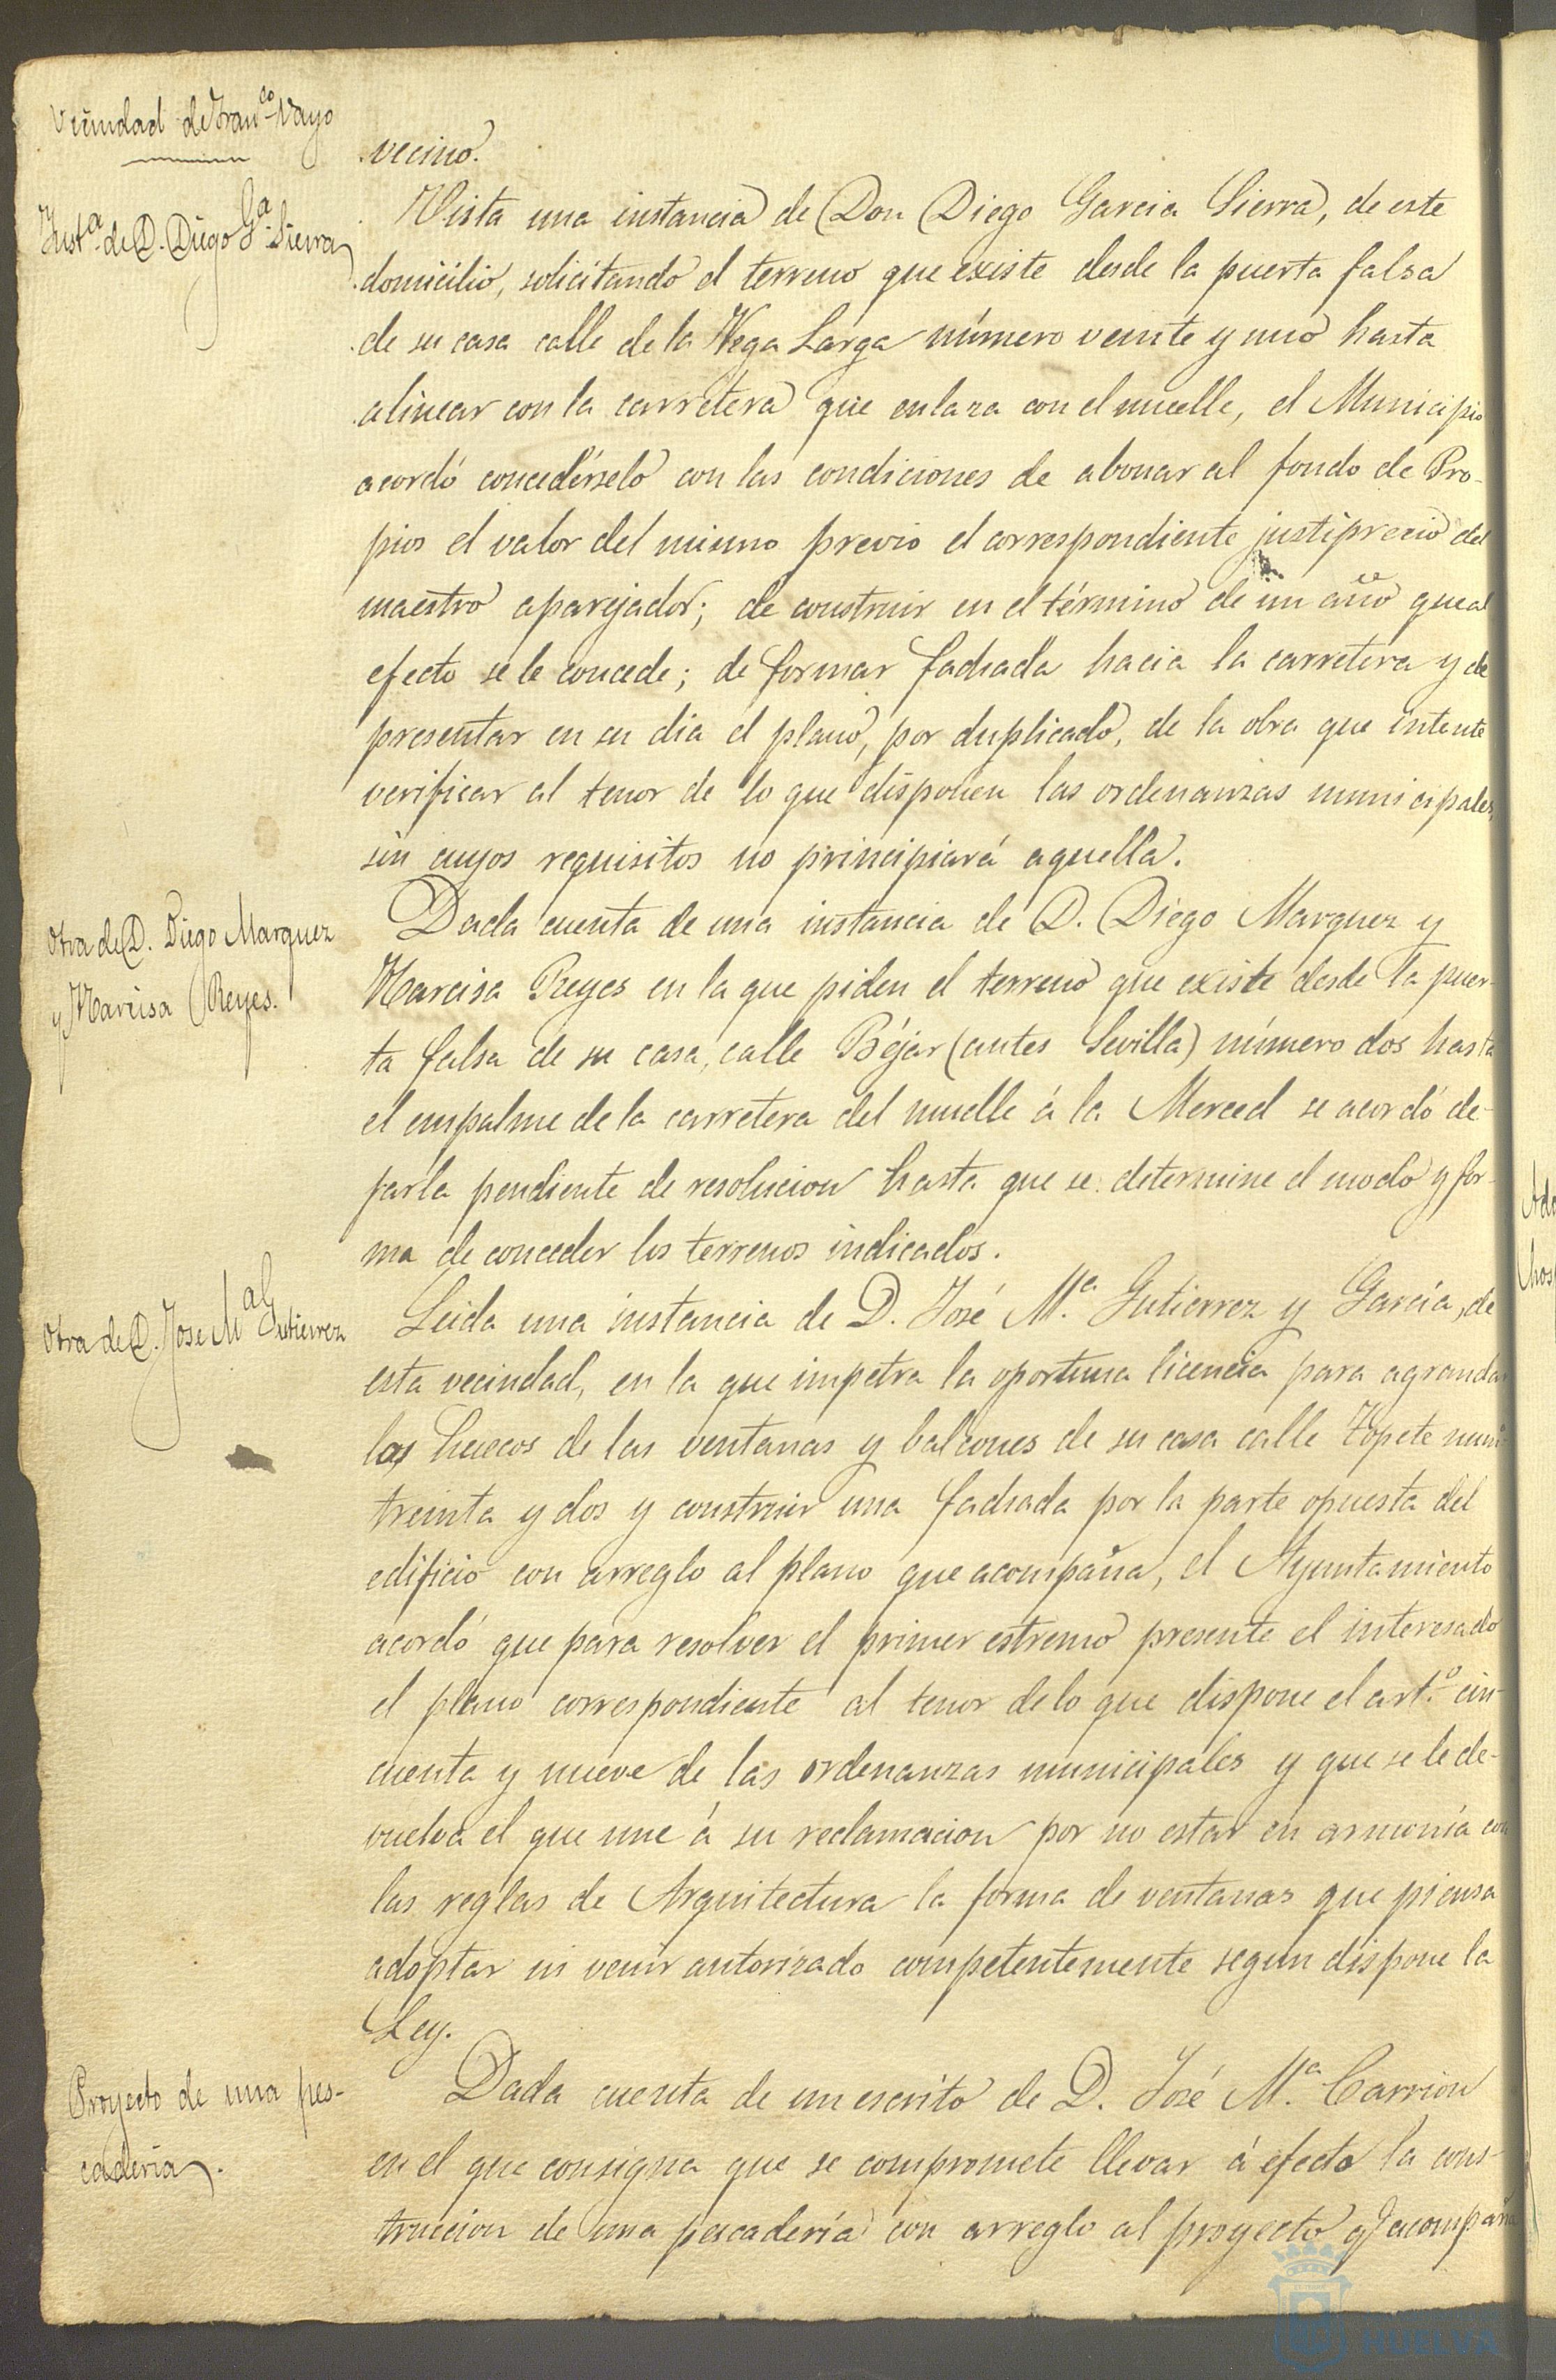 Vecindad de Fran.co Vayo
vecino.
Inst.a de D. Diego G.a Sierra
Vista una instancia de Don Diego Garcia Sierra, de este
domicilio, solicitando el terreno que existe desde la puerta falsa
de su casa calle de la Vega Larga número veinte y uno hasta
alinear con la carretera que enlaza con el muelle, el Municipio
acordó concedérselo con las condiciones de abonar al fondo de Pro-
pios el valor del mismo previo el correspondiente justiprecio del
maestro aparejador; de construir en el término de un año que al
efecto se le concede; de formar fachada hacia la carretera y de
presentar en su dia el plano, por duplicado, de la obra que intente
verificar al tenor de lo que disponen las ordenanzas municipales,
sin cuyos requisitos no principiará aquella.
Otra de D. Diego Marquez
y Narcisa Reyes.
Dada cuenta de una instancia de D. Diego Marquez y
Narcisa Reyes en la que piden el terreno que existe desde la puer-
ta falsa de su casa, calle Béjar (antes Sevilla) número dos hasta
el empalme de la carretera del muelle á la Merced se acordó de-
jarla pendiente de resolucion hasta que se determine el modo y for-
ma de conceder los terrenos indicados.
Otra de D. Jose M.a Gutierrez
Leida una instancia de D. José M.a Gutierrez y García, de
esta vecindad, en la que impetra la oportuna licencia para agrandar
los huecos de las ventanas y balcones de su casa calle Topete num.o
treinta y dos y construir una fachada por la parte opuesta del
edificio con arreglo al plano que acompaña, el Ayuntamiento
acordó que para resolver el primer estremo presente el interesado
el plano correspondiente al tenor de lo que dispone el art.o cin-
cuenta y nueve de las ordenanzas municipales y que se le de-
vuelva el que une á su reclamacion por no estar en armonía con
las reglas de Arquitectura la forma de ventanas que piensa
adoptar ni venir autorizado competentemente segun dispone la
Ley.
Proyecto de una pes-
cadería.
Dada cuenta de un escrito de D. José M.a Carrion
en el que consigna que se compromete llevar á efecto la cons-
truccion de una pescadería con arreglo al proyecto q.e acompaña
HUELVA